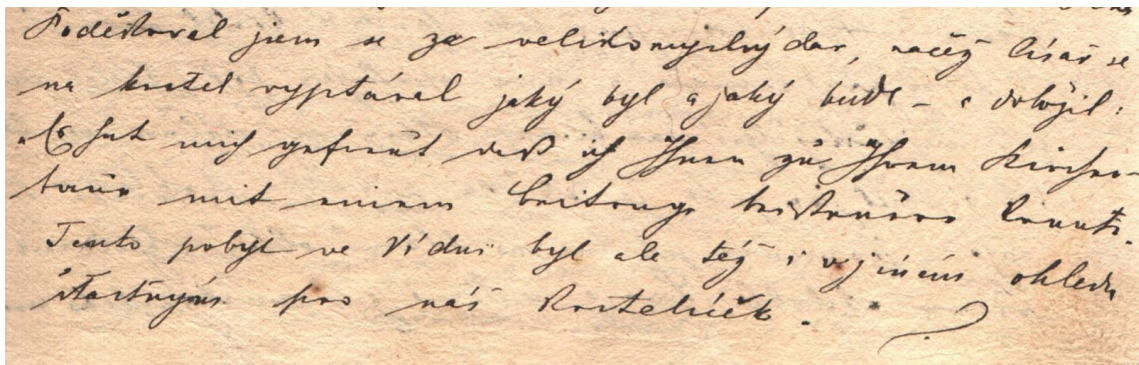 Poděkoval jsem se za velikomyslný dar, načež císař se
na kostel vyptával jaký byl a jaký bude – a doložil:
„Es hat mich gefreut daß ich Ihnen zu Ihrem Kirchen-
baue mit einem Beitrage beisteuern konnte.
Tento pobyt ve Vídni byl ale též i v jiném ohledu
šťastným pro náš kostelíček.